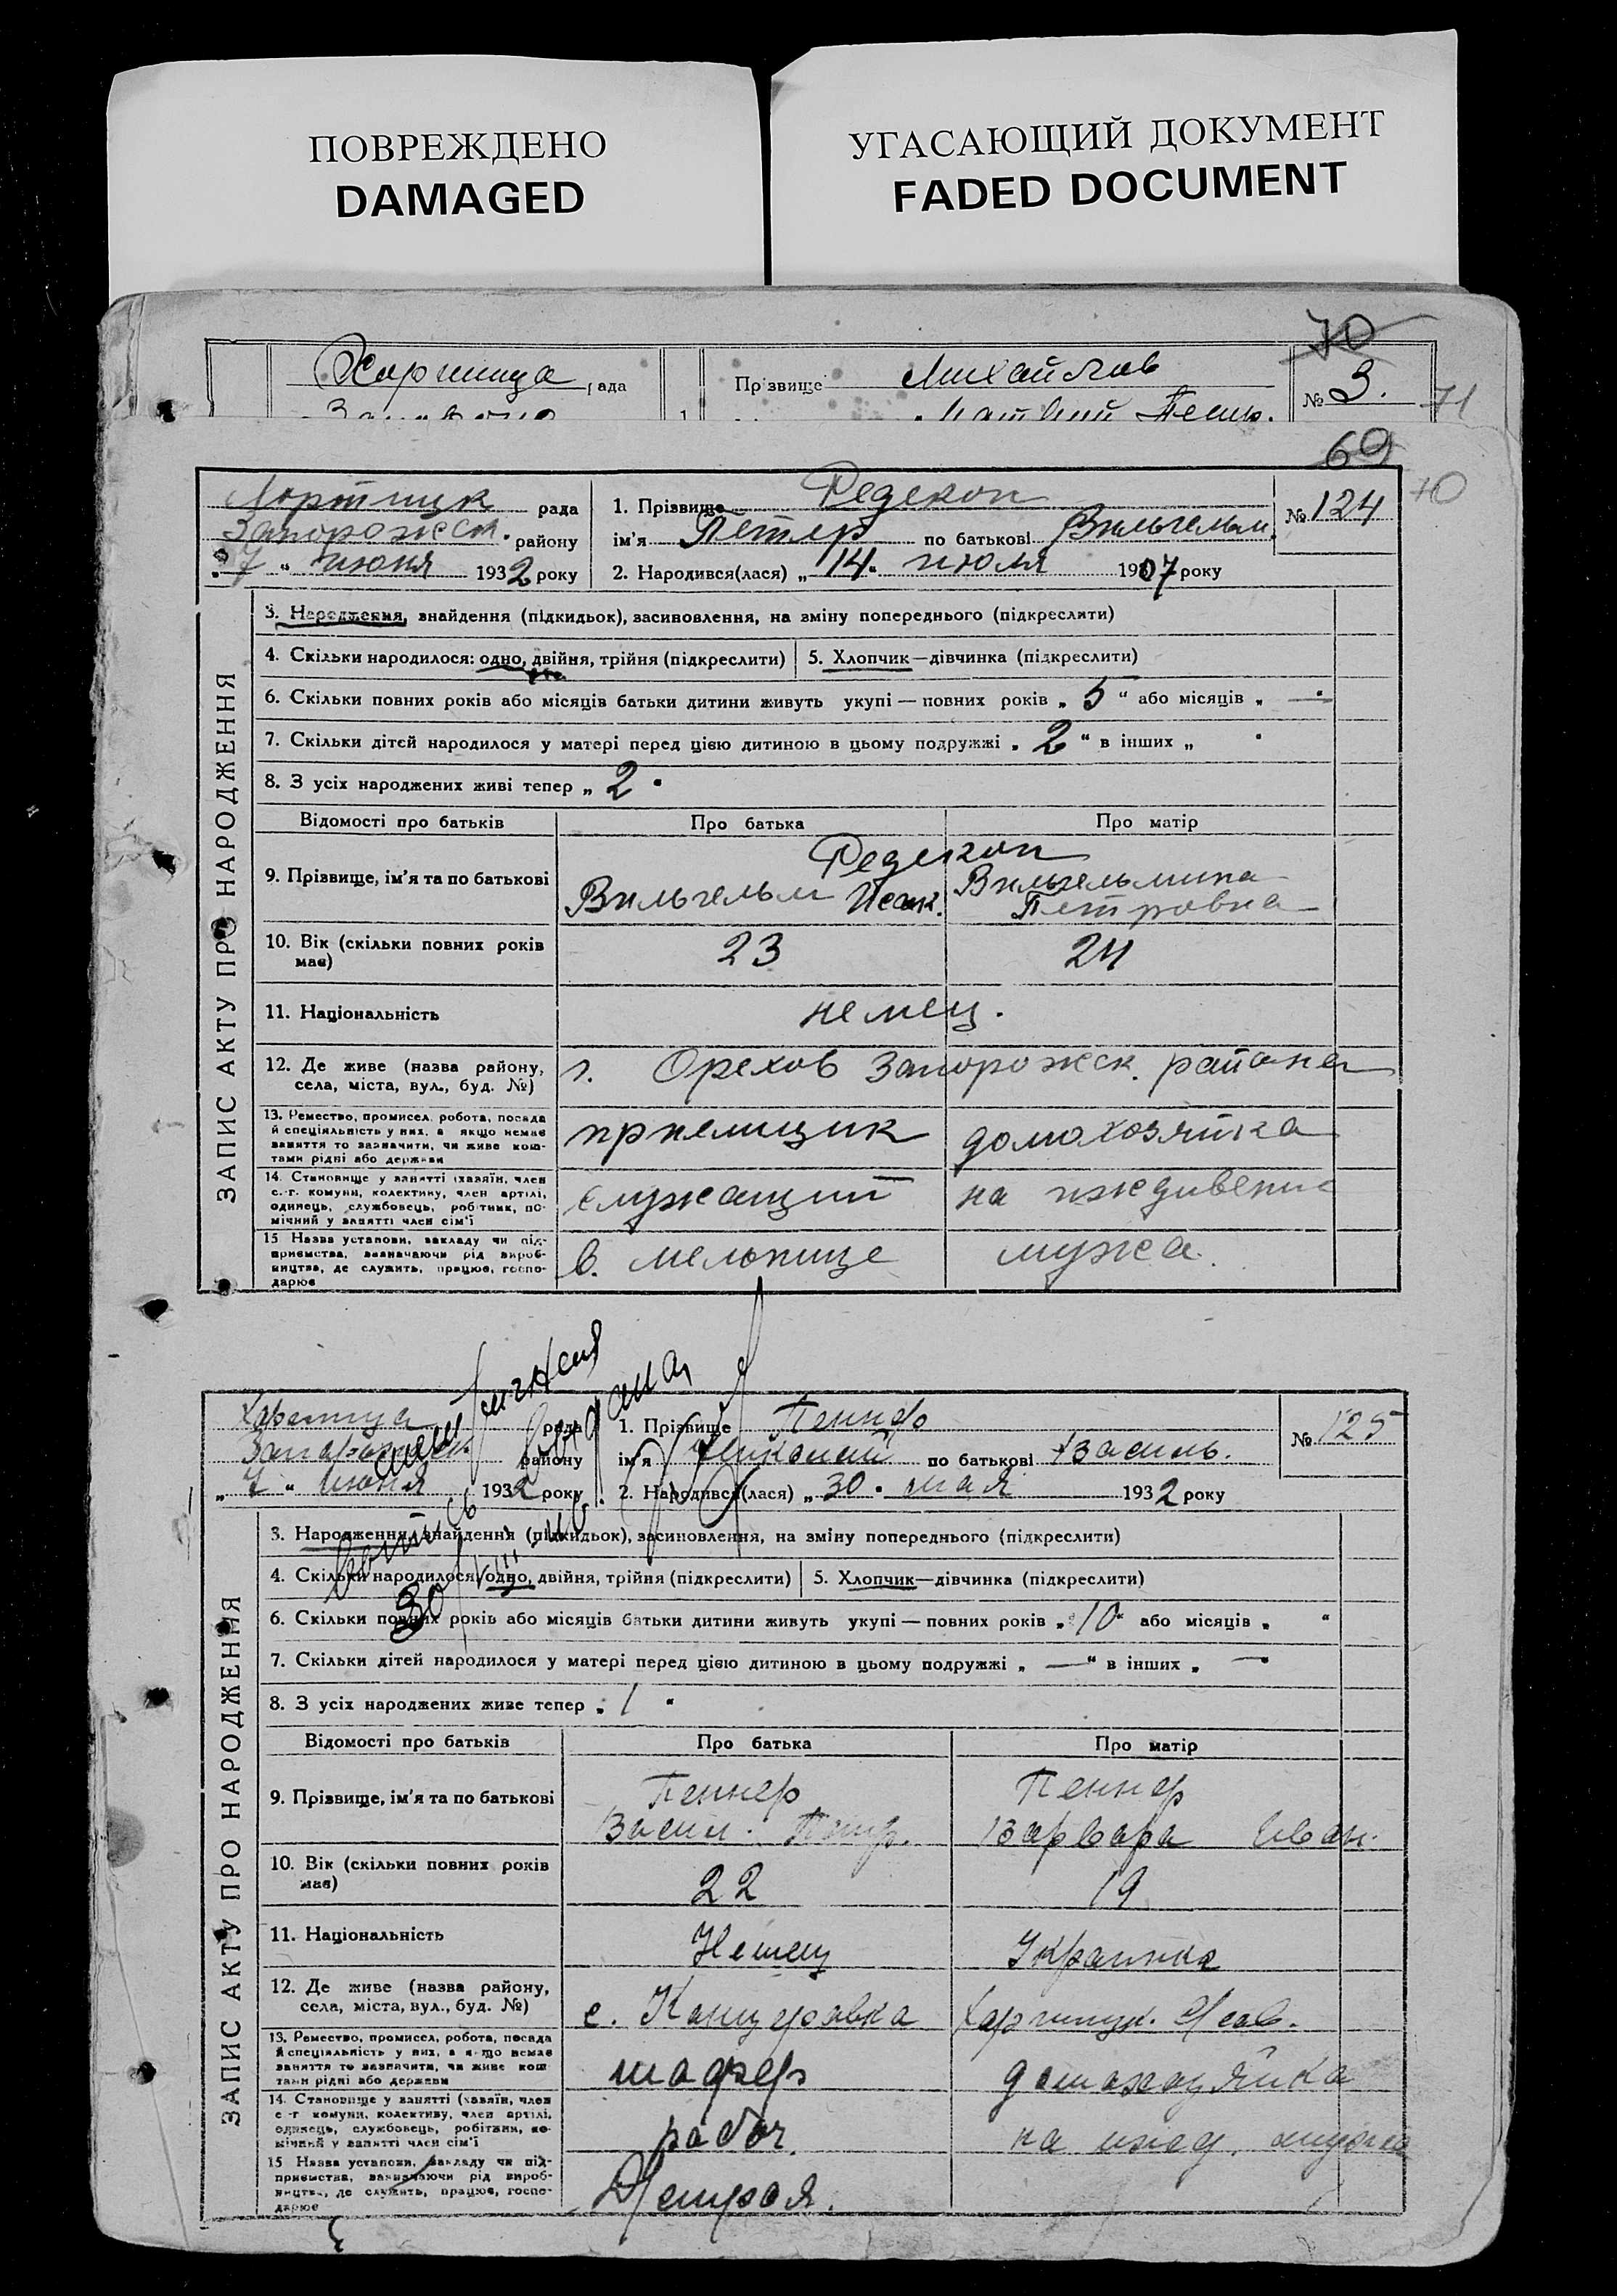 ПОВРЕЖДЕНО
DAMAGED
УГАСАЮЩИЙ ДОКУМЕНТ
FADED DOCUMENT
70
рада
Прізвище Михайлов
№ 3.
71
69
70
Хортицк рада
Запорожск. району
"7" июня 1932 року
1. Прізвище Редекоп
ім'я Петер по батькові Вильгельм.
2. Народився(лася) „14" июля 1907 року
№ 124
ЗАПИС АКТУ ПРО НАРОДЖЕННЯ
3. Народження, знайдення (підкидьок), засиновлення, на зміну попереднього (підкреслити)
4. Скільки народилося: одно, двійня, трійня (підкреслити)
5. Хлопчик—дівчинка (підкреслити)
6. Скільки повних років або місяців батьки дитини живуть укупі — повних років „5" або місяців „ —"
7. Скільки дітей народилося у матері перед цією дитиною в цьому подружжі „2" в інших „ "
8. З усіх народжених живі тепер „2"
Відомості про батьків
Про батька
Про матір
9. Прізвище, ім'я та по батькові
Редекоп
Вильгельм Исаак.
Вильгельмина
Петровна
10. Вік (скільки повних років має)
23
24
11. Національність
немец.
12. Де живе (назва району, села, міста, вул., буд. №)
г. Орехов Запорожск. района
13. Ремество, промисел, робота, посада й спеціяльність у них, а якщо немає заняття то зазначити, чи живе коштами рідні або держави
приемщик
домохозяйка
14. Становище у занятті (хазяїн, член с.-г. комуни, колективу, член артілі, одинець, службовець, робітник, помічний у занятті член сім'ї
служащий
на иждивении
15 Назва установи, закладу чи підприємства, зазначаючи рід виробництва, де служить, працює, господарює
в. мельнице
мужа.
Хортица рада
району
"7" июня 1932 року
1. Прізвище Пеннер
ім'я Николай по батькові Василь.
2. Народився(лася) „30" мая 1932 року
№ 125
ЗАПИС АКТУ ПРО НАРОДЖЕННЯ
3. Народження, знайдення (підкидьок), засиновлення, на зміну попереднього (підкреслити)
4. Скільки народилося: одно, двійня, трійня (підкреслити)
5. Хлопчик—дівчинка (підкреслити)
6. Скільки повних років або місяців батьки дитини живуть укупі — повних років „10" або місяців „ "
7. Скільки дітей народилося у матері перед цією дитиною в цьому подружжі „ —" в інших „ —"
8. З усіх народжених живе тепер „1"
Відомості про батьків
Про батька
Про матір
9. Прізвище, ім'я та по батькові
Пеннер
Васил. Петр.
Пеннер
Варвара Иван.
10. Вік (скільки повних років має)
22
19
11. Національність
Немец
Украинка
12. Де живе (назва району, села, міста, вул., буд. №)
с. Канцеровка
13. Ремество, промисел, робота, посада й спеціяльність у них, а якщо немає заняття то зазначити, чи живе коштами рідні або держави
шофер
домохозяйка
14. Становище у занятті (хазяїн, член с-г комуни, колективу, член артілі, одинець, службовець, робітник, помічний у занятті член сім'ї
рабоч.
на ижд. мужа
15 Назва установи, закладу чи підприємства, зазначаючи рід виробництва, де служить, працює, господарює